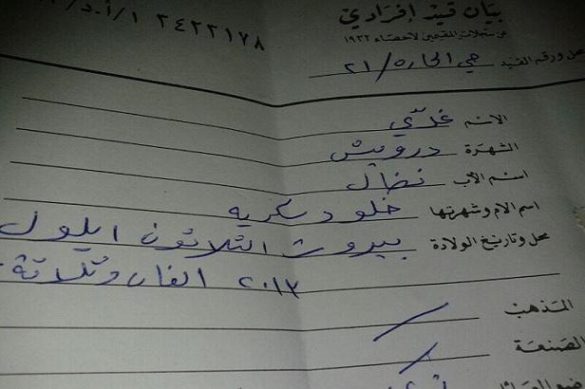 بيان قيد إفرادي
عن سجلات المقيمين لإحصاء ١٩٣٢
٢٤٢٢١٧٨
محل ورقم القيد حي الخاره / ٢١
الاسم غدي
الشهرة درويش
اسم الأب نضال
اسم الام وشهرتها خلود سكريه
محل وتاريخ الولادة بيروت الثلاثون ايلول
٢٠١٣ الفان وثلاثة
المذهب /
الصنعة /